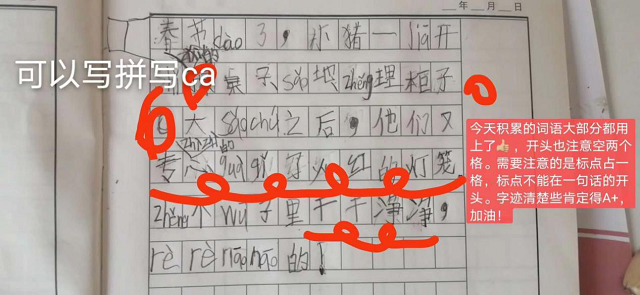 年 月 日
春节dào了，小猪一jiā开
桌子sǎo坝zhěng理柜子
大sǎochú之后，他们又
专心guà好火红的灯笼
zhěng个wū子里干干净净，
rè rè nāo nāo的！
可以写拼写ca
今天积累的词语大部分都用
上了👍，开头也注意空两个
格。需要注意的是标点占一
格，标点不能在一句话的开
头。字迹清楚些肯定得A+，
加油！